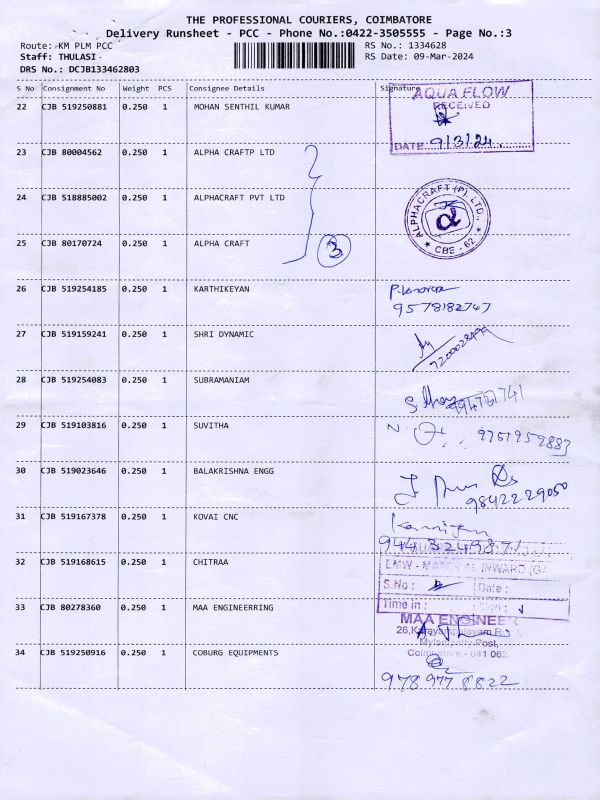 THE PROFESSIONAL COURIERS, COIMBATORE
Delivery Runsheet - PCC - Phone No.:0422-3505555 - Page No.:3
Route: KM PLM PCC
RS No.: 1334628
Staff: THULASI
RS Date: 09-Mar-2024
DRS No.: DCJB133462803
S No Consignment No Weight PCS Consignee Details Signature
22 CJB 519250881 0.250 1 MOHAN SENTHIL KUMAR
AQUA FLOW
RECEIVED
DATE 9/3/24
23 CJB 80004562 0.250 1 ALPHA CRAFTP LTD
24 CJB 518885002 0.250 1 ALPHACRAFT PVT LTD
ALPHACRAFT (P) LTD.,
α
★ CBE - 62. ★
25 CJB 80170724 0.250 1 ALPHA CRAFT
3
26 CJB 519254185 0.250 1 KARTHIKEYAN
9578182767
27 CJB 519159241 0.250 1 SHRI DYNAMIC
28 CJB 519254083 0.250 1 SUBRAMANIAM
29 CJB 519103816 0.250 1 SUVITHA
9751959883
30 CJB 519023646 0.250 1 BALAKRISHNA ENGG
9842229050
31 CJB 519167378 0.250 1 KOVAI CNC
32 CJB 519168615 0.250 1 CHITRAA
S.No : Date :
33 CJB 80278360 0.250 1 MAA ENGINEERRING
Time in : Sign :
MAA ENGINEER
Mylampatty Post,
Coimbatore - 641 062.
34 CJB 519250916 0.250 1 COBURG EQUIPMENTS
9789778822